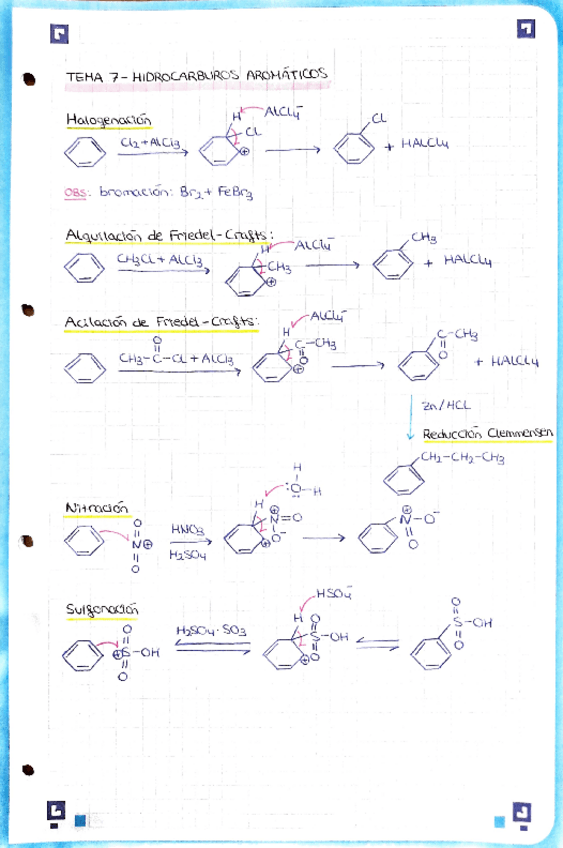 TEMA 7 - HIDROCARBUROS AROMÁTICOS
Halogenación
Cl2 + AlCl3
H
AlCl4-
Cl
⊕
Cl
+ HAlCl4
OBS: bromación: Br2 + FeBr3
Alquilación de Friedel-Crafts:
CH3Cl + AlCl3
H
AlCl4-
CH3
⊕
CH3
+ HAlCl4
Acilación de Friedel-Crafts:
O
CH3-C-Cl + AlCl3
H
AlCl4-
C-CH3
O
⊕
C-CH3
O
+ HAlCl4
Zn/HCl
Reducción Clemmensen
CH2-CH2-CH3
Nitración
O
N⊕
O
HNO3
H2SO4
H
:O-H
H
⊕
N=O
O-
⊕
⊕
N-O-
O
Sulfonación
O
⊕S-OH
O
H2SO4·SO3
HSO4-
H
O
S-OH
O
⊕
O
S-OH
O